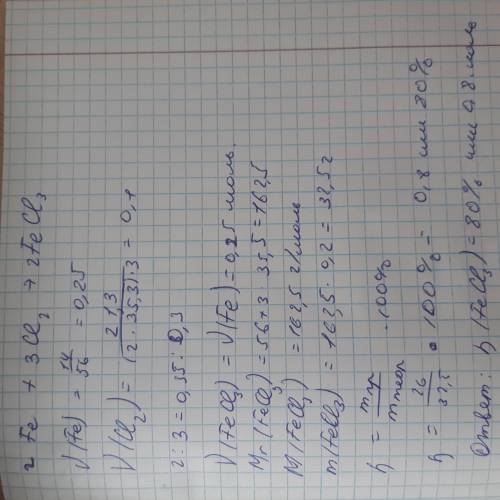 2 Fe + 3Cl₂ → 2FeCl₃
ν(Fe) = 14/56 = 0,25
ν(Cl₂) = 213/(2 · 35,5) · 3 = 0,1
2 : 3 = 0,25 : 0,3
ν(FeCl₃) = ν(Fe) = 0,25 моль.
Mr(FeCl₃) = 56+3 · 35,5 = 162,5
M(FeCl₃) = 162,5 г/моль
m(FeCl₃) = 162,5 · 0,2 = 32,5 г
η = m пр / m теор · 100%
η = 26/32,5 · 100% = 0,8 или 80%
Ответ: η(FeCl₃) = 80% или 0,8 моль